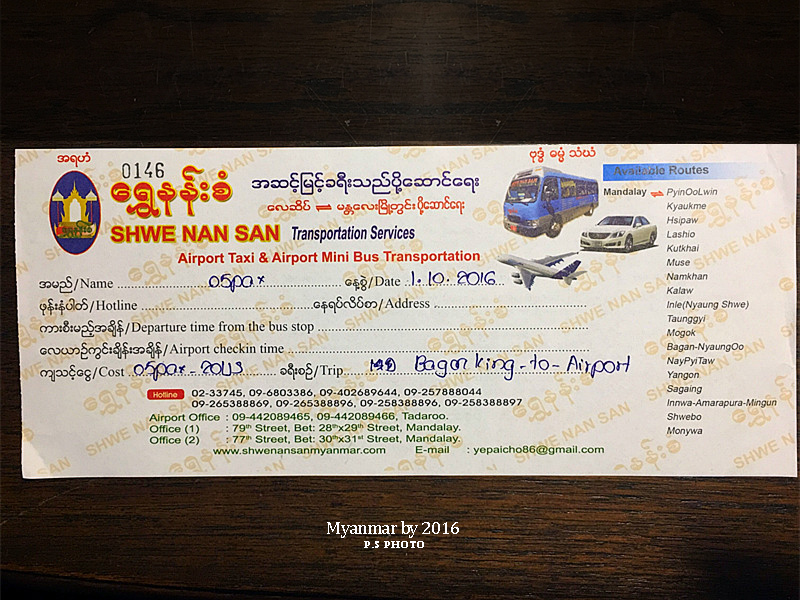 အရဟံ
ဗုဒ္ဓံ ဓမ္မံ သံဃံ
0146
ရွှေနန်းစံ
အဆင့်မြင့်ခရီးသည်ပို့ဆောင်ရေး
လေဆိပ် ⇌ မန္တလေးမြို့တွင်းပို့ဆောင်ရေး
SHWE NAN SAN Transportation Services
Airport Taxi & Airport Mini Bus Transportation
အမည်/Name နေ့စွဲ/Date 1.10.2016
ဖုန်းနံပါတ်/Hotline နေရပ်လိပ်စာ/Address
ကားစီးမည့်အချိန်/Departure time from the bus stop
လေယာဉ်ကွင်းချိန်းအချိန်/Airport checkin time
ကျသင့်ငွေ/Cost ခရီးစဉ်/Trip Bagan king-to-Airport
Hotline 02-33745, 09-6803386, 09-402689644, 09-257888044
09-265388869, 09-265388896, 09-258388896, 09-258388897
Airport Office : 09-442089465, 09-442089466, Tadaroo.
Office (1) : 79th Street, Bet: 28thx29th Street, Mandalay.
Office (2) : 77th Street, Bet: 30thx31st Street, Mandalay.
www.shwenansanmyanmar.com E-mail : yepaicho86@gmail.com
Available Routes
Mandalay ⇌ PyinOoLwin
Kyaukme
Hsipaw
Lashio
Kutkhai
Muse
Namkhan
Kalaw
Inle(Nyaung Shwe)
Taunggyi
Mogok
Bagan-NyaungOo
NayPyiTaw
Yangon
Sagaing
Innwa-Amarapura-Mingun
Shwebo
Monywa
Myanmar by 2016
P.S PHOTO